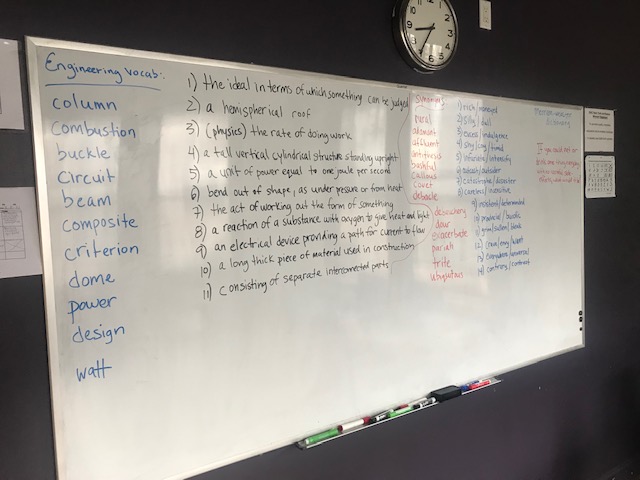 Engineering Vocab:
column
Combustion
buckle
Circuit
beam
composite
criterion
dome
power
design
watt
1) the ideal in terms of which something can be judged
2) a hemispherical roof
3) (physics) the rate of doing work
4) a tall vertical cylindrical structure standing upright
5) a unit of power equal to one joule per second
6) bend out of shape, as under pesure or from heat
7) the act of working out the form of something
8) a reaction of a substance with oxygen to give heat and light
9) an electrical device providing a path for current to flow
10) a long thick piece of material used in construction
11) consisting of separate interconnected parts
Synonyms
affluent
bashful
callous
covet
debacle
debauchery
dour
exacerbate
pariah
trite
ubiquitous
1) rich/moneyed
2) silly/dull
3) excess/indulgence
4) shy/coy/timid
5) infuriate/intensify
6) outcast/outsider
7) catastrophe/disaster
8)
9)
10) provincial/rustic
11) grim/sullen/bleak
12) crave/envy/want
13) everywhere/universal
14) contrary/contrast